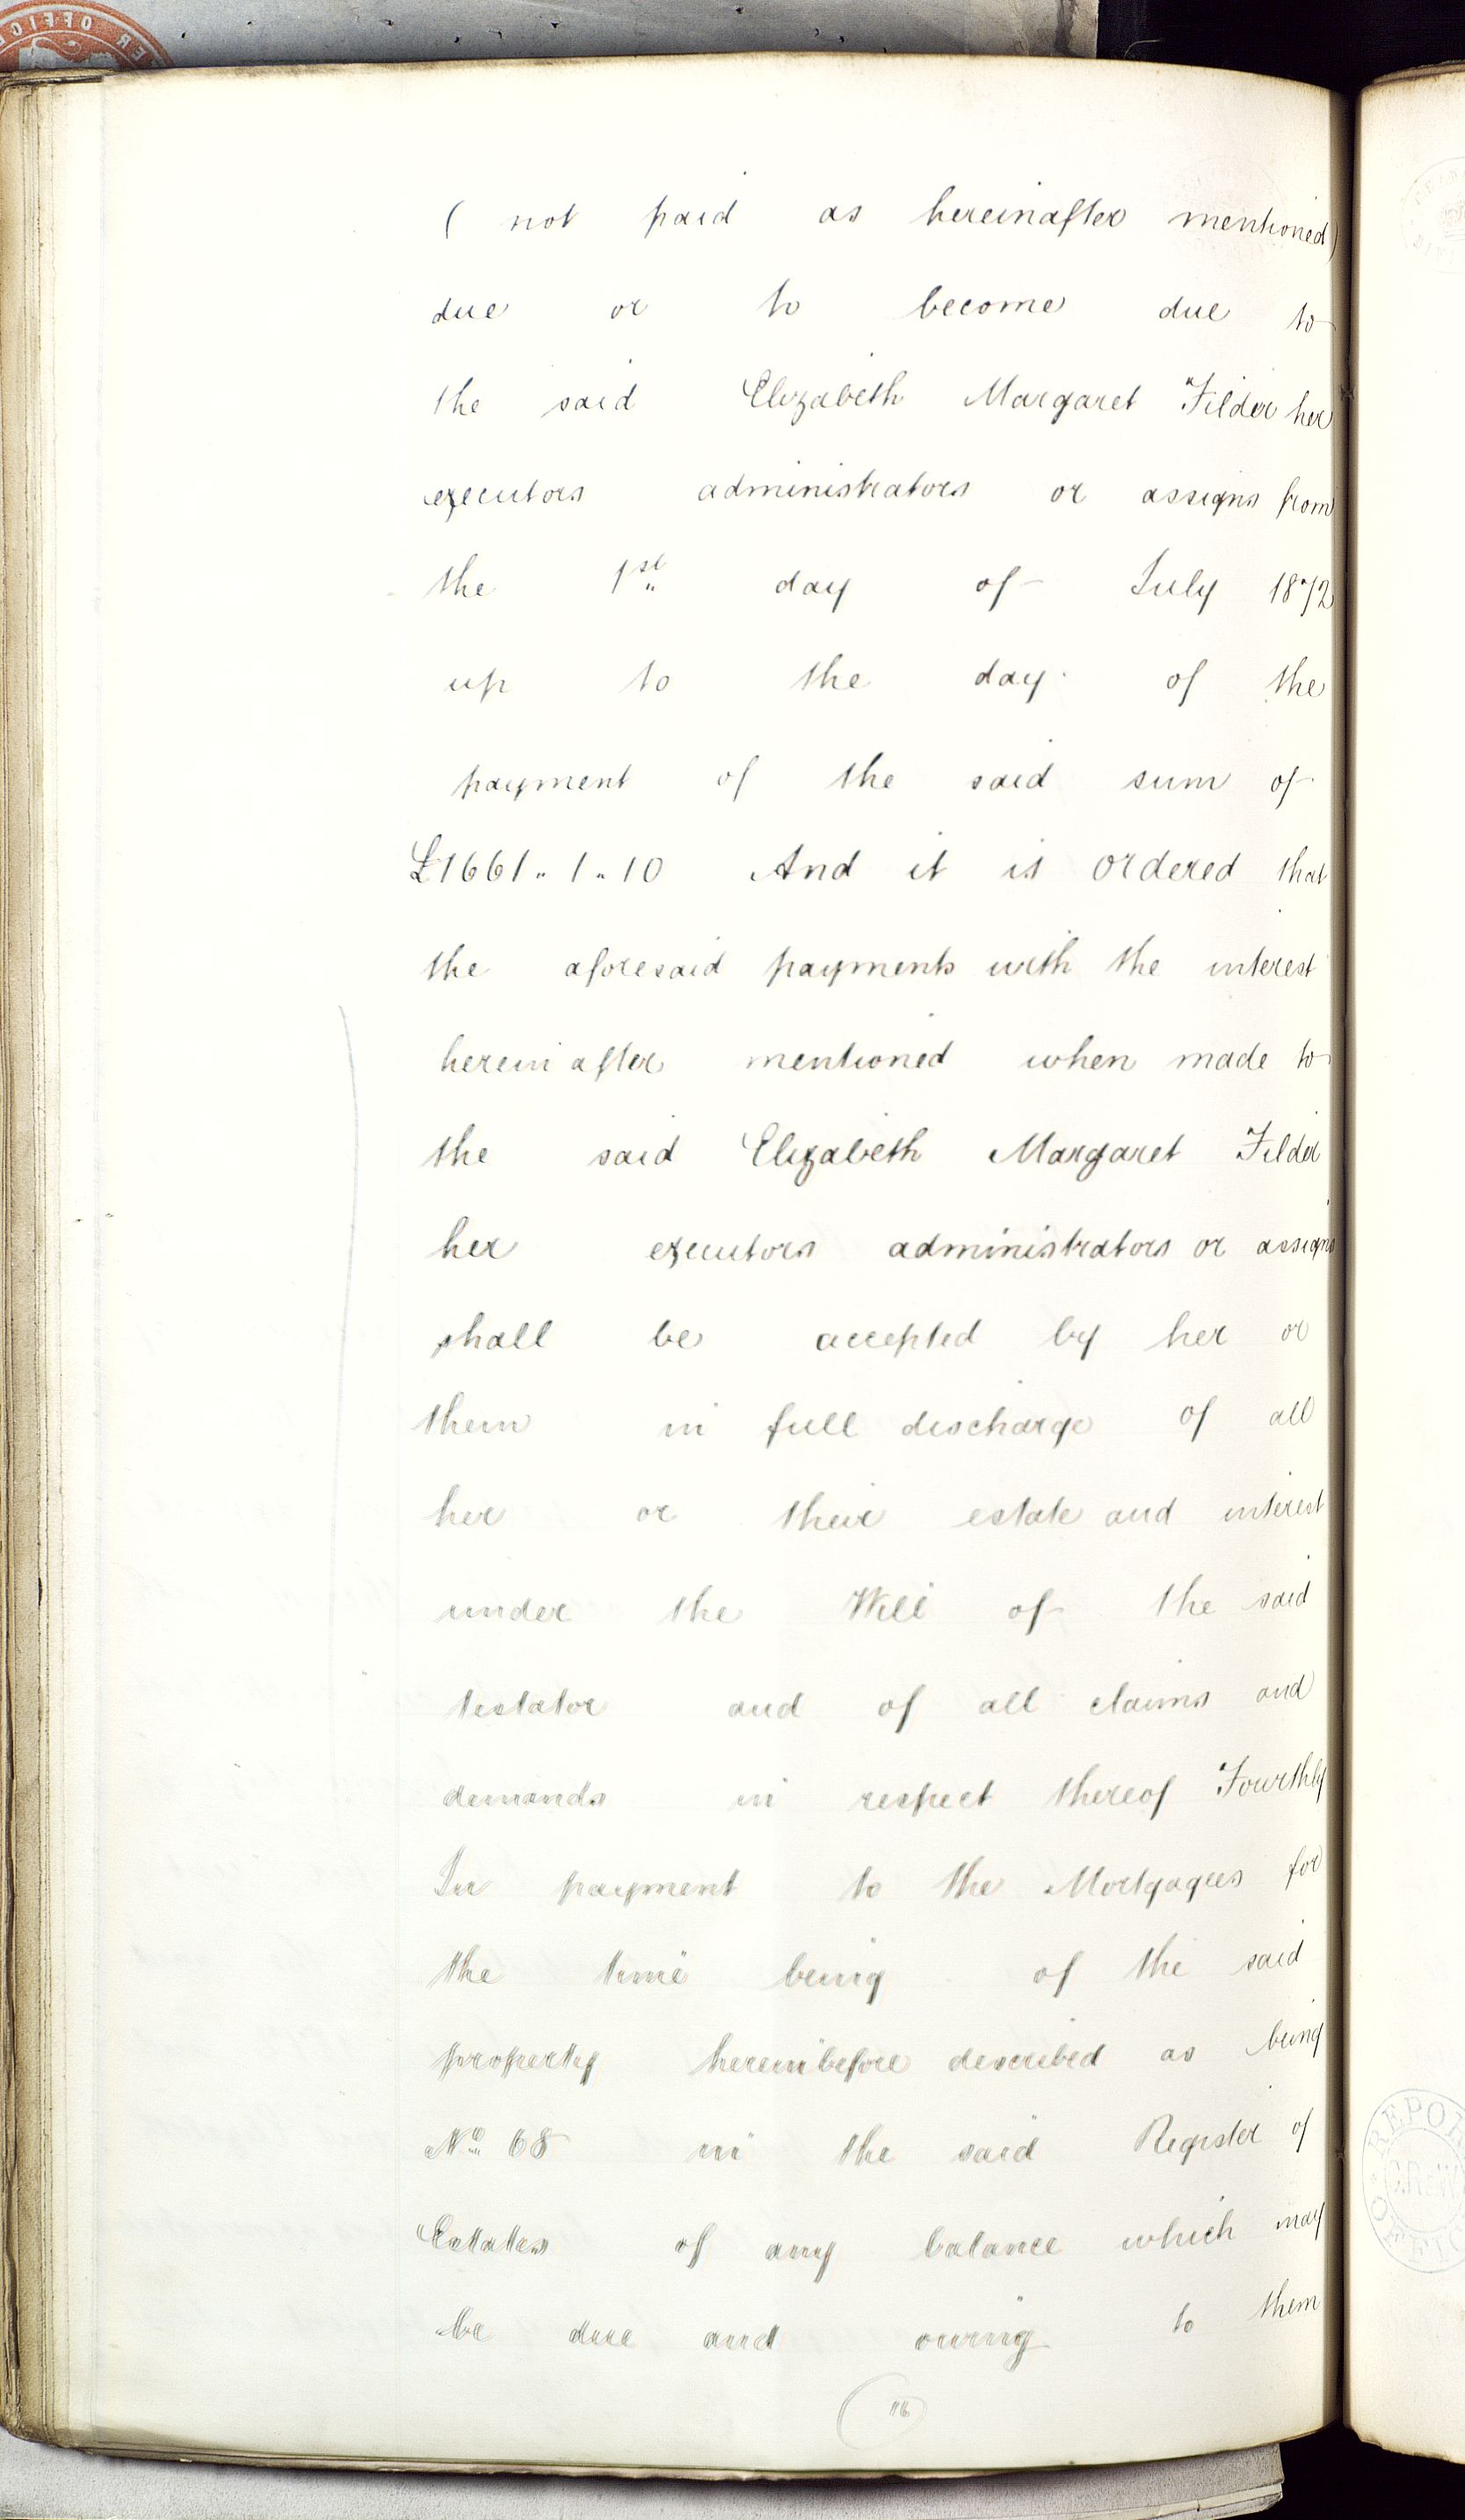 ( not paid as hereinafter mentioned)
due or to become due to
the said Elizabeth Margaret Filder her
executors administrators or assigns from
the 1st day of July 1872
up to the day of the
payment of the said sum of
£1661..1..10 And it is ordered that
the aforesaid payments with the interest
herein after mentioned when made to
the said Elizabeth Margaret Filder
her executors administrators or assigns
shall be accepted by her or
them in full discharge of all
her or their estate and interest
under the Will of the said
testator and of all claims and
demands in respect thereof Fourthly
In payment to the Mortgagees for
the time being of the said
property hereinbefore described as being
No 68 in the said Register of
Estates of any balance which may
be due and owing to them